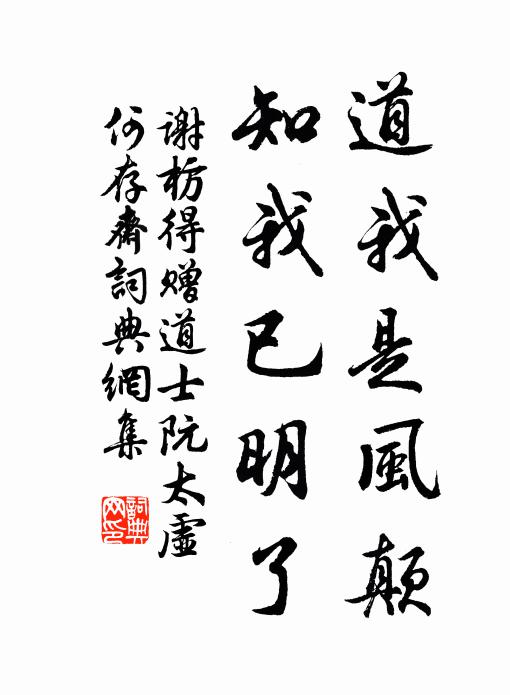 道我是風顛
知我已明了
謝枋得贈道士阮太虛
何存齋詞典網集
詞典網印